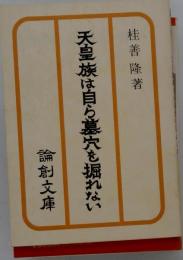 桂善隆著
天皇族は自ら墓穴を掘れない
論創文庫